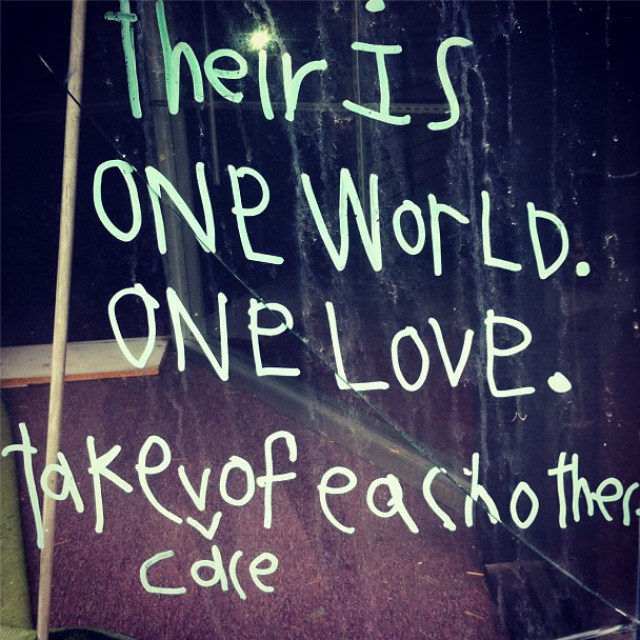 their is
ONE WorLD.
ONE LOVE.
take v of eachother.
care